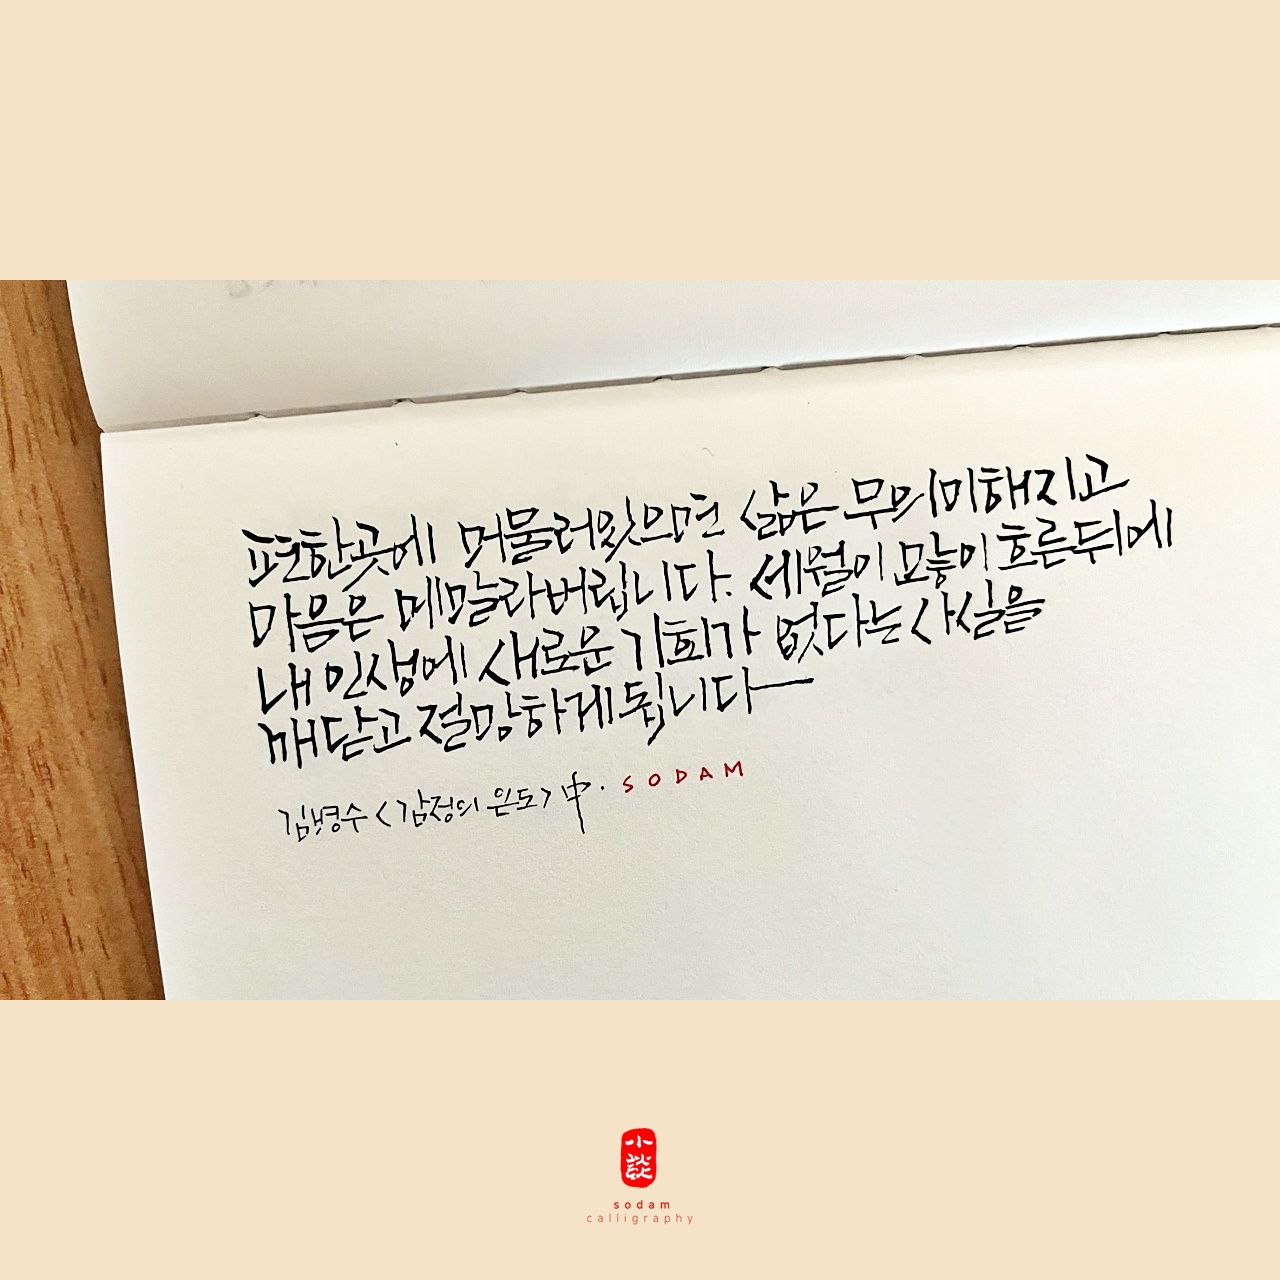 편한곳에 머물러있으면 삶은 무의미해지고
마음은 메말라버립니다. 세월이 많이 흐른뒤에
내 인생에 새로운 기회가 없다는 사실을
깨닫고 절망하게 됩니다
김병수 <감정의 온도> 中. SODAM
小談
sodam
calligraphy